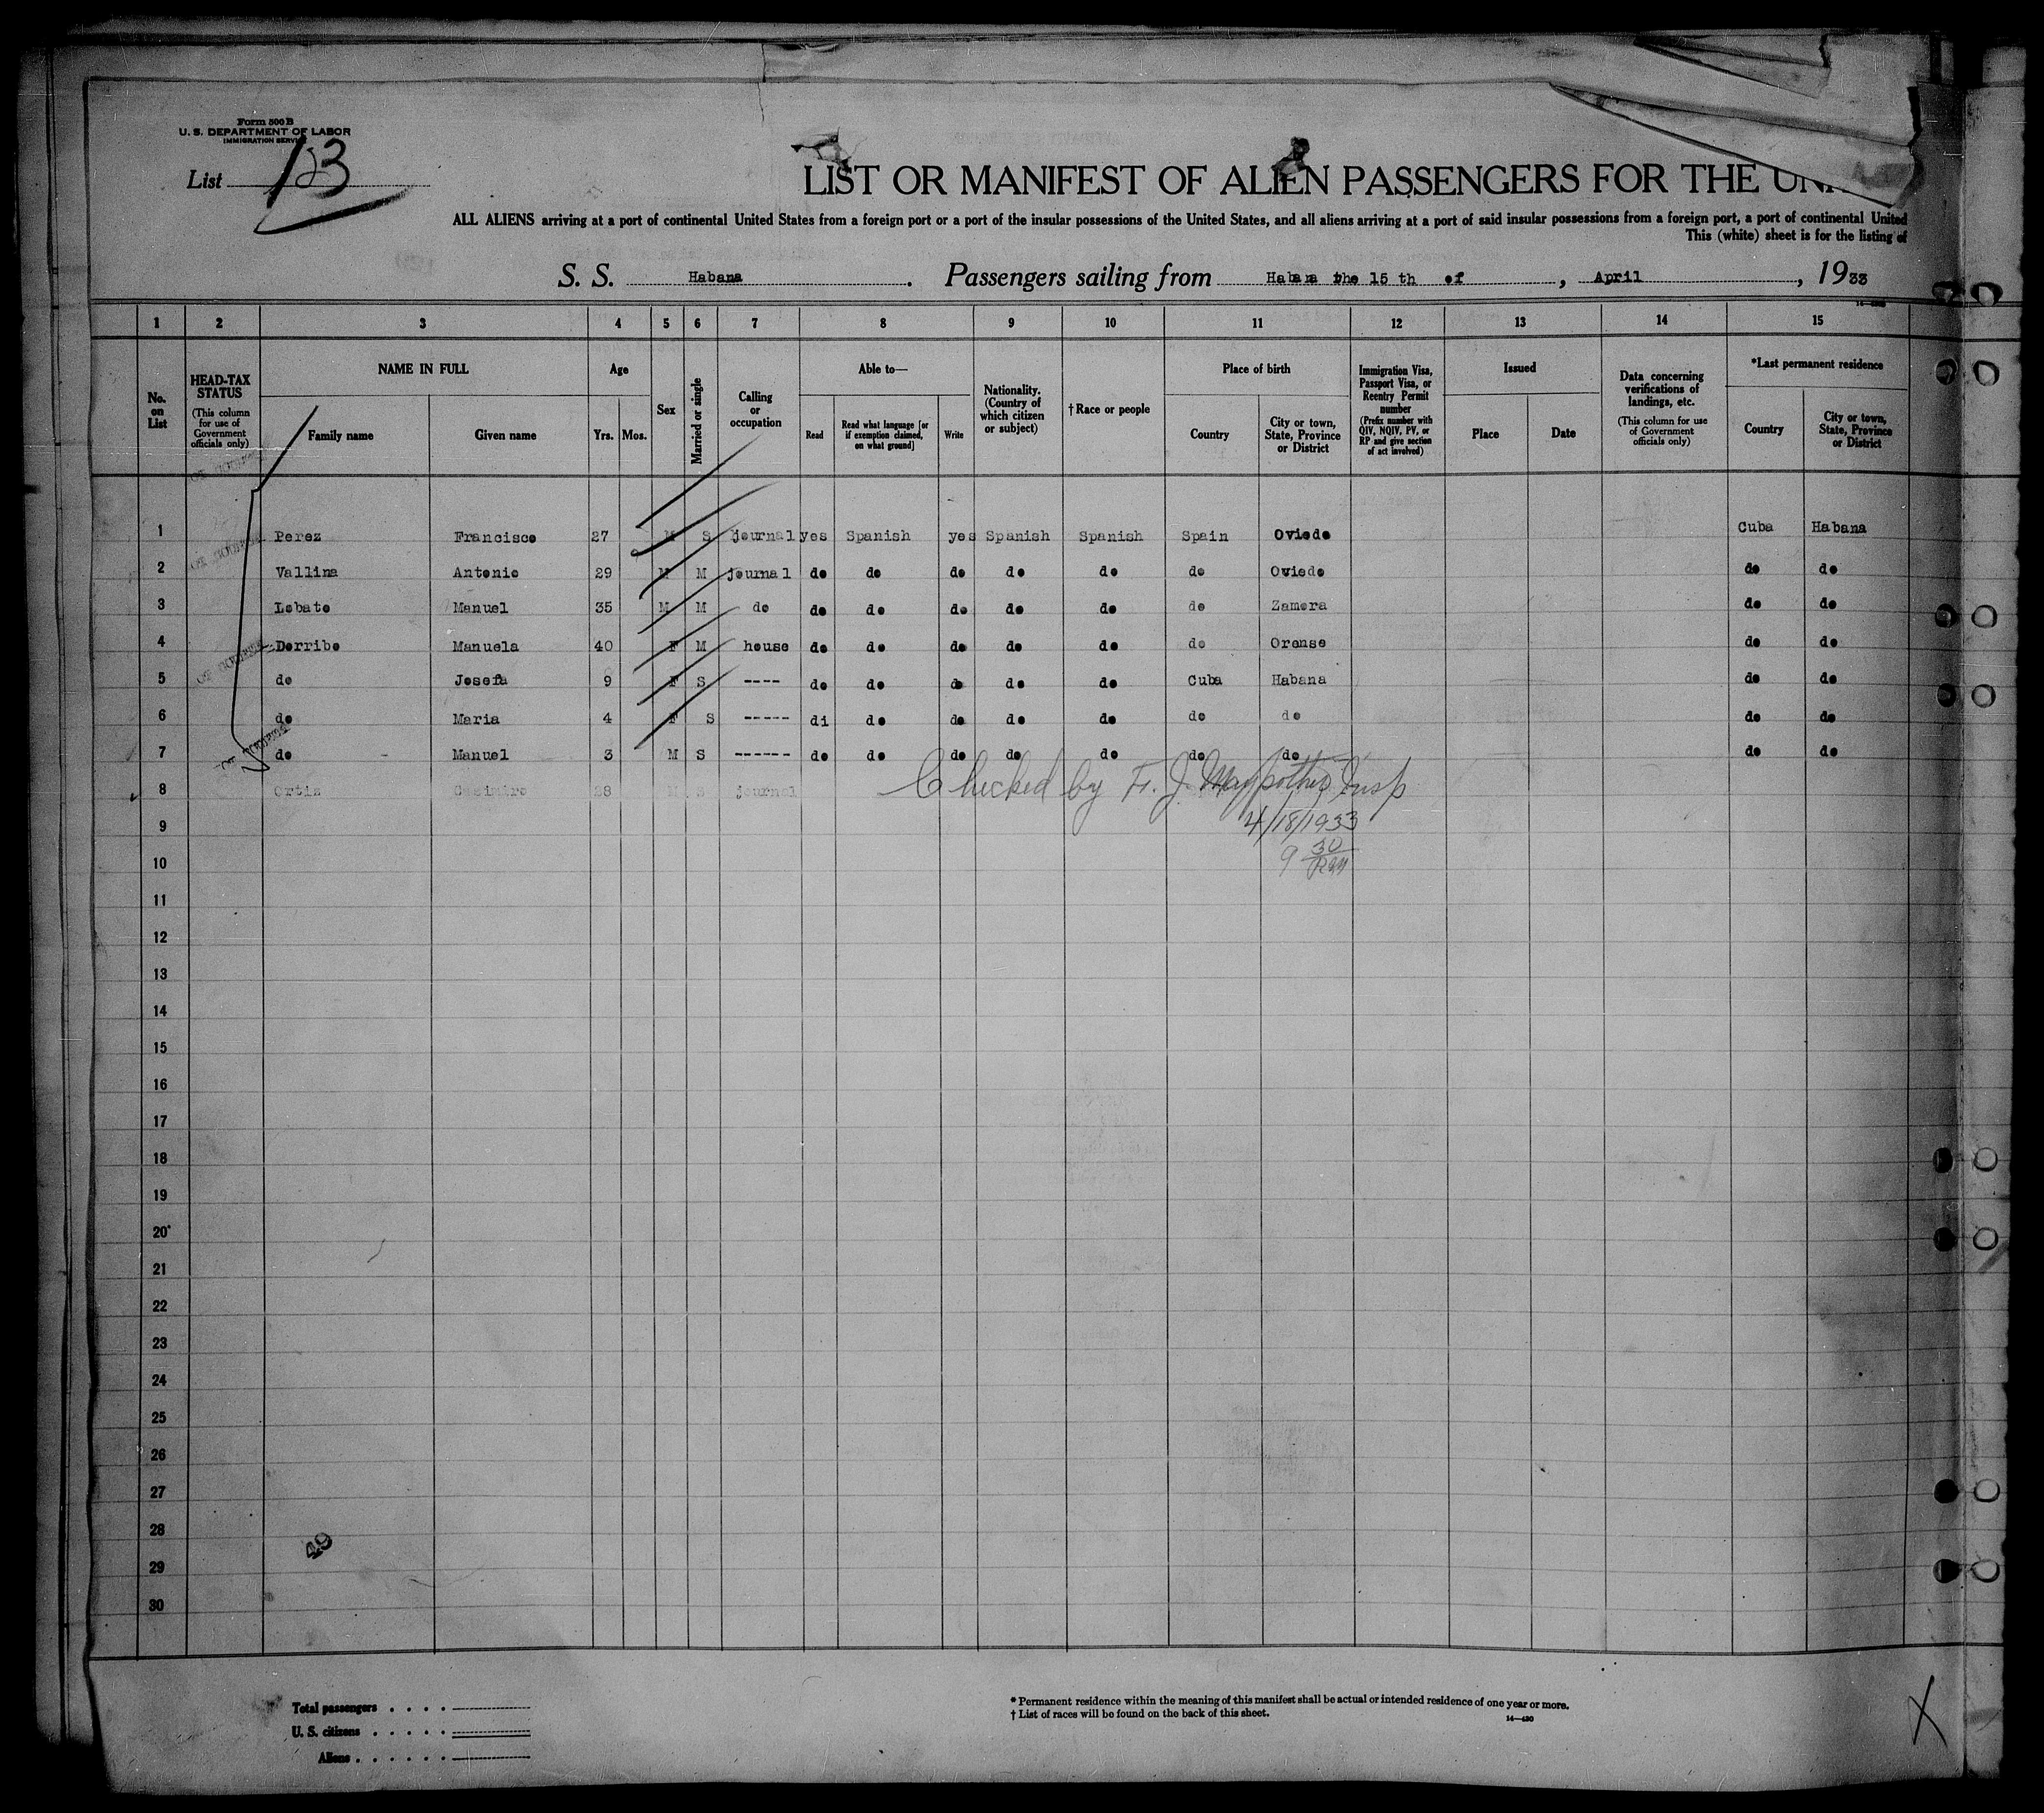 Form 500 B
U. S. DEPARTMENT OF LABOR
IMMIGRATION SERVICE
List 123
LIST OR MANIFEST OF ALIEN PASSENGERS FOR THE UNI
ALL ALIENS arriving at a port of continental United States from a foreign port or a port of the insular possessions of the United States, and all aliens arriving at a port of said insular possessions from a foreign port, a port of continental United
This (white) sheet is for the listing of
S. S. Habana . Passengers sailing from Habana the 15 th of , April , 1933
1 2 3 4 5 6 7 8 9 10 11 12 13 14 15
No. on List
HEAD-TAX STATUS
(This column for use of Government officials only)
NAME IN FULL
Family name Given name
Age
Yrs. Mos.
Sex
Married or single
Calling or occupation
Able to—
Read
Read what language [or if exemption claimed, on what ground]
Write
Nationality. (Country of which citizen or subject)
† Race or people
Place of birth
Country
City or town, State, Province or District
Immigration Visa, Passport Visa, or Reentry Permit number
(Prefix number with QIV, NQIV, PV, or RP and give section of act involved)
Issued
Place Date
Data concerning verifications of landings, etc.
(This column for use of Government officials only)
*Last permanent residence
Country
City or town, State, Province or District
1 Perez Francisco 27 M S journal yes Spanish yes Spanish Spanish Spain Oviedo Cuba Habana
2 Vallina Antonio 29 M M journal do do do do do do Oviedo do do
3 Lobato Manuel 35 M M do do do do do do do Zamora do do
4 Dorribo Manuela 40 F M house do do do do do do Orense do do
5 do Josefa 9 F S ---- do do do do do Cuba Habana do do
6 do Maria 4 F S ----- di do do do do do do do do
7 do Manuel 3 M S ------ do do do do do do do do do
8 Ortiz Casimiro 28 M S journal
Checked by F. J. Insp
4/18/1933
9 30
9
10
11
12
13
14
15
16
17
18
19
20
21
22
23
24
25
26
27
28
29
30
49
Total passengers . . . .
U. S. citizens . . . . .
Aliens . . . . . .
* Permanent residence within the meaning of this manifest shall be actual or intended residence of one year or more.
† List of races will be found on the back of this sheet.
14—430
X